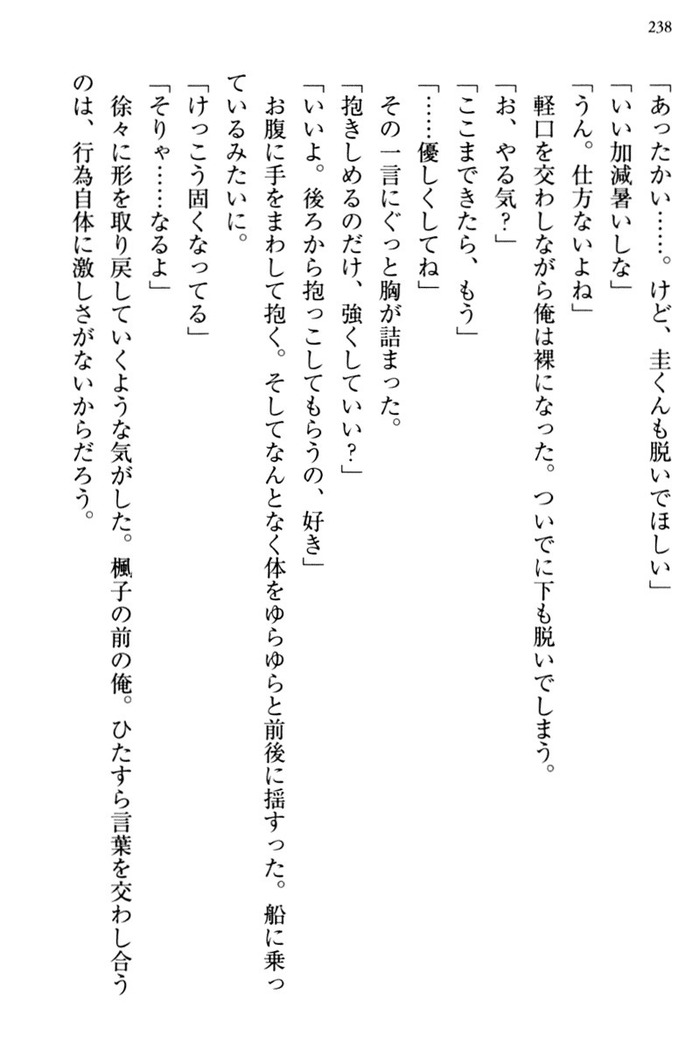 238
「あったかい……。けど、圭くんも脱いでほしい」
「いい加減暑いしな」
「うん。仕方ないよね」
軽口を交わしながら俺は裸になった。ついでに下も脱いでしまう。
「お、やる気?」
「ここまできたら、もう」
「……優しくしてね」
その一言にぐっと胸が詰まった。
「抱きしめるのだけ、強くしていい?」
「いいよ。後ろから抱っこしてもらうの、好き」
お腹に手をまわして抱く。そしてなんとなく体をゆらゆらと前後に揺すった。船に乗っ
ているみたいに。
「けっこう固くなってる」
「そりゃ……なるよ」
徐々に形を取り戻していくような気がした。楓子の前の俺。ひたすら言葉を交わし合う
のは、行為自体に激しさがないからだろう。